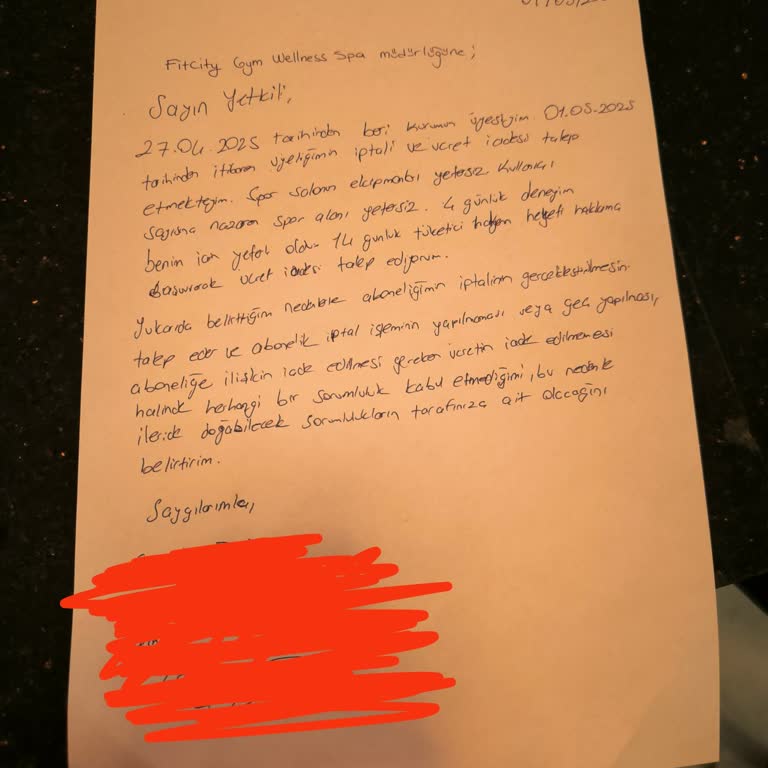 01/05/2
FitCity Gym Wellness Spa müdürlüğüne;
Sayın Yetkili,
27.04.2025 tarihinden beri kurumun üyesiyim. 01.05.2025
tarihinden itibaren üyeliğimin iptali ve ücret iadesi talep
etmekteyim. Spor salonu ekipmanı yetersiz kullanıcı
sayısına nazaran spor alanı yetersiz. 4 günlük deneyim
benim için yeterli oldu. 14 günlük tüketici hakkıma
başvurarak ücret iadesi talep ediyorum.
Yukarıda belirttiğim nedenlerle aboneliğimin iptalinin gerçekleştirilmesini
talep eder ve abonelik iptal işleminin yapılmaması veya geç yapılması,
aboneliğe ilişkin iade edilmesi gereken ücretin iade edilmemesi
halinde herhangi bir sorumluluk kabul etmediğimi, bu nedenle
ileride doğabilecek sorumlulukların tarafınıza ait olacağını
belirtirim.
Saygılarımla,